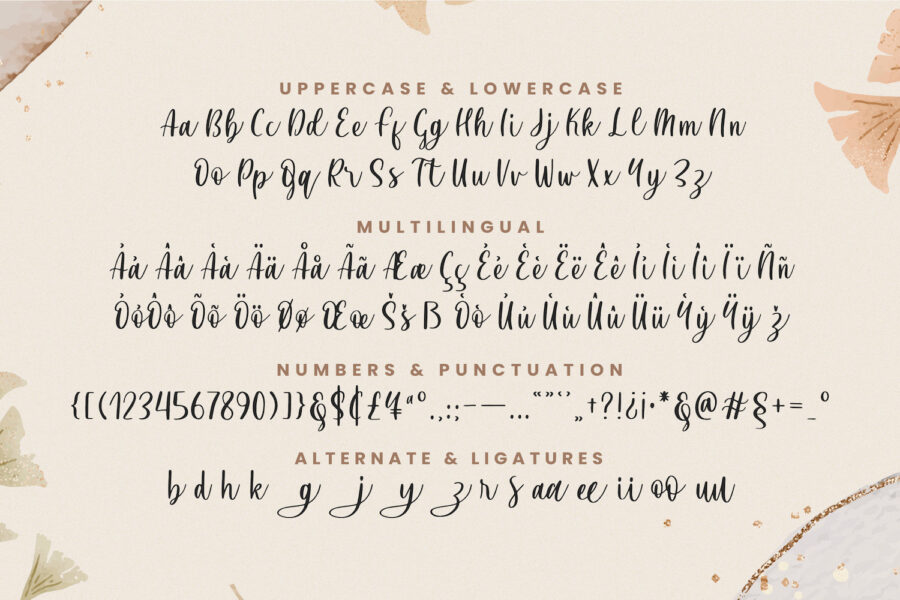 UPPERCASE & LOWERCASE
Aa Bb Cc Dd Ee Ff Gg Hh Ii Jj Kk Ll Mm Nn
Oo Pp Qq Rr Ss Tt Uu Vv Ww Xx Yy Zz
MULTILINGUAL
Áá Ââ Àà Ää Åå Ãã Ææ Çç Éé Èè Ëë Êê Íí Ìì Îî Ïï Ññ
ÓóÔô Õõ Öö Øø Œœ Šš ß Òò Úú Ùù Ûû Üü Ýý Ÿÿ ž
NUMBERS & PUNCTUATION
{[(1234567890)]}&$₵£¥ªº.,:;-–—…“”‘’„†?!¿¡•*&@#§+=_°
ALTERNATE & LIGATURES
b d h k g j y z r s aa ee ii oo uu